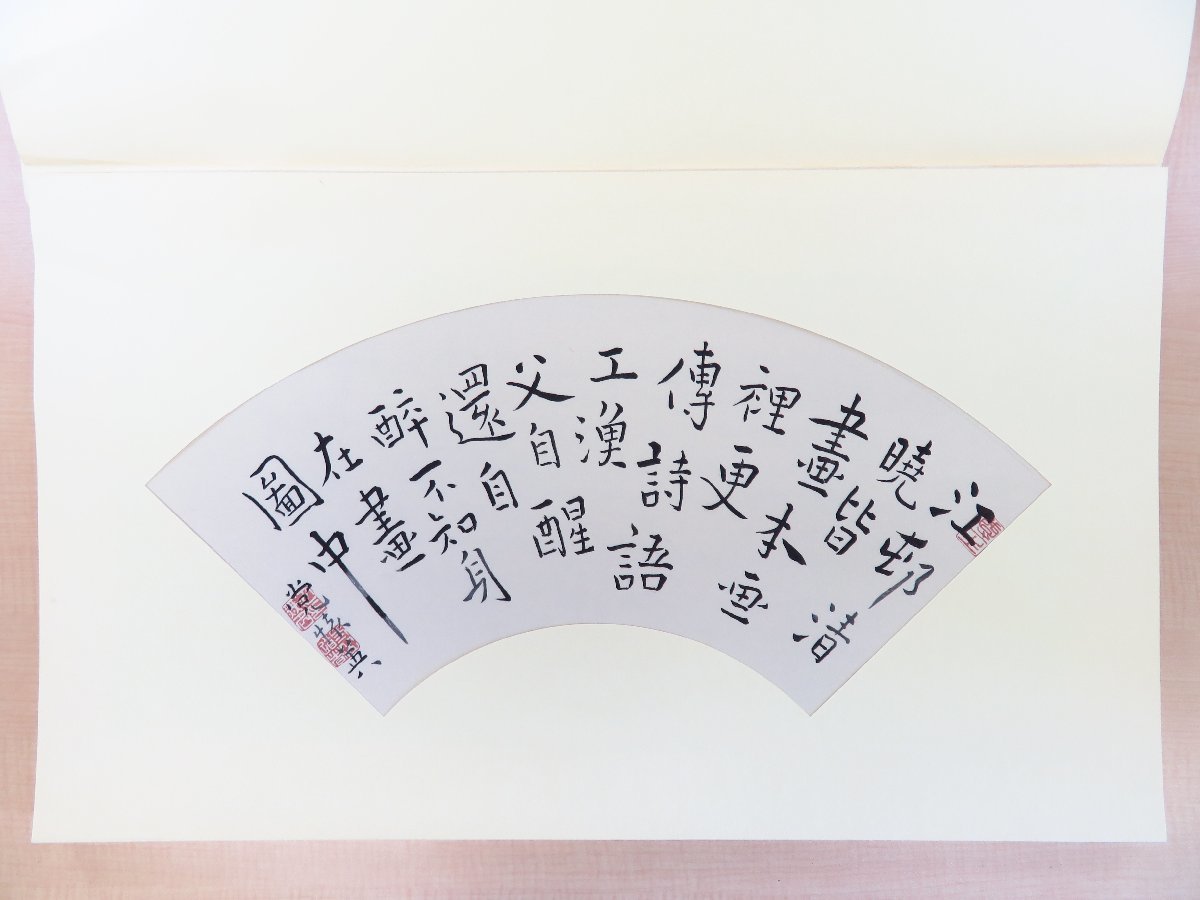 江邨清
曉皆
畫本画
裡更
傳詩語
工漁
父自醒
還自
醉不知身
在畫
圖中
党懐英